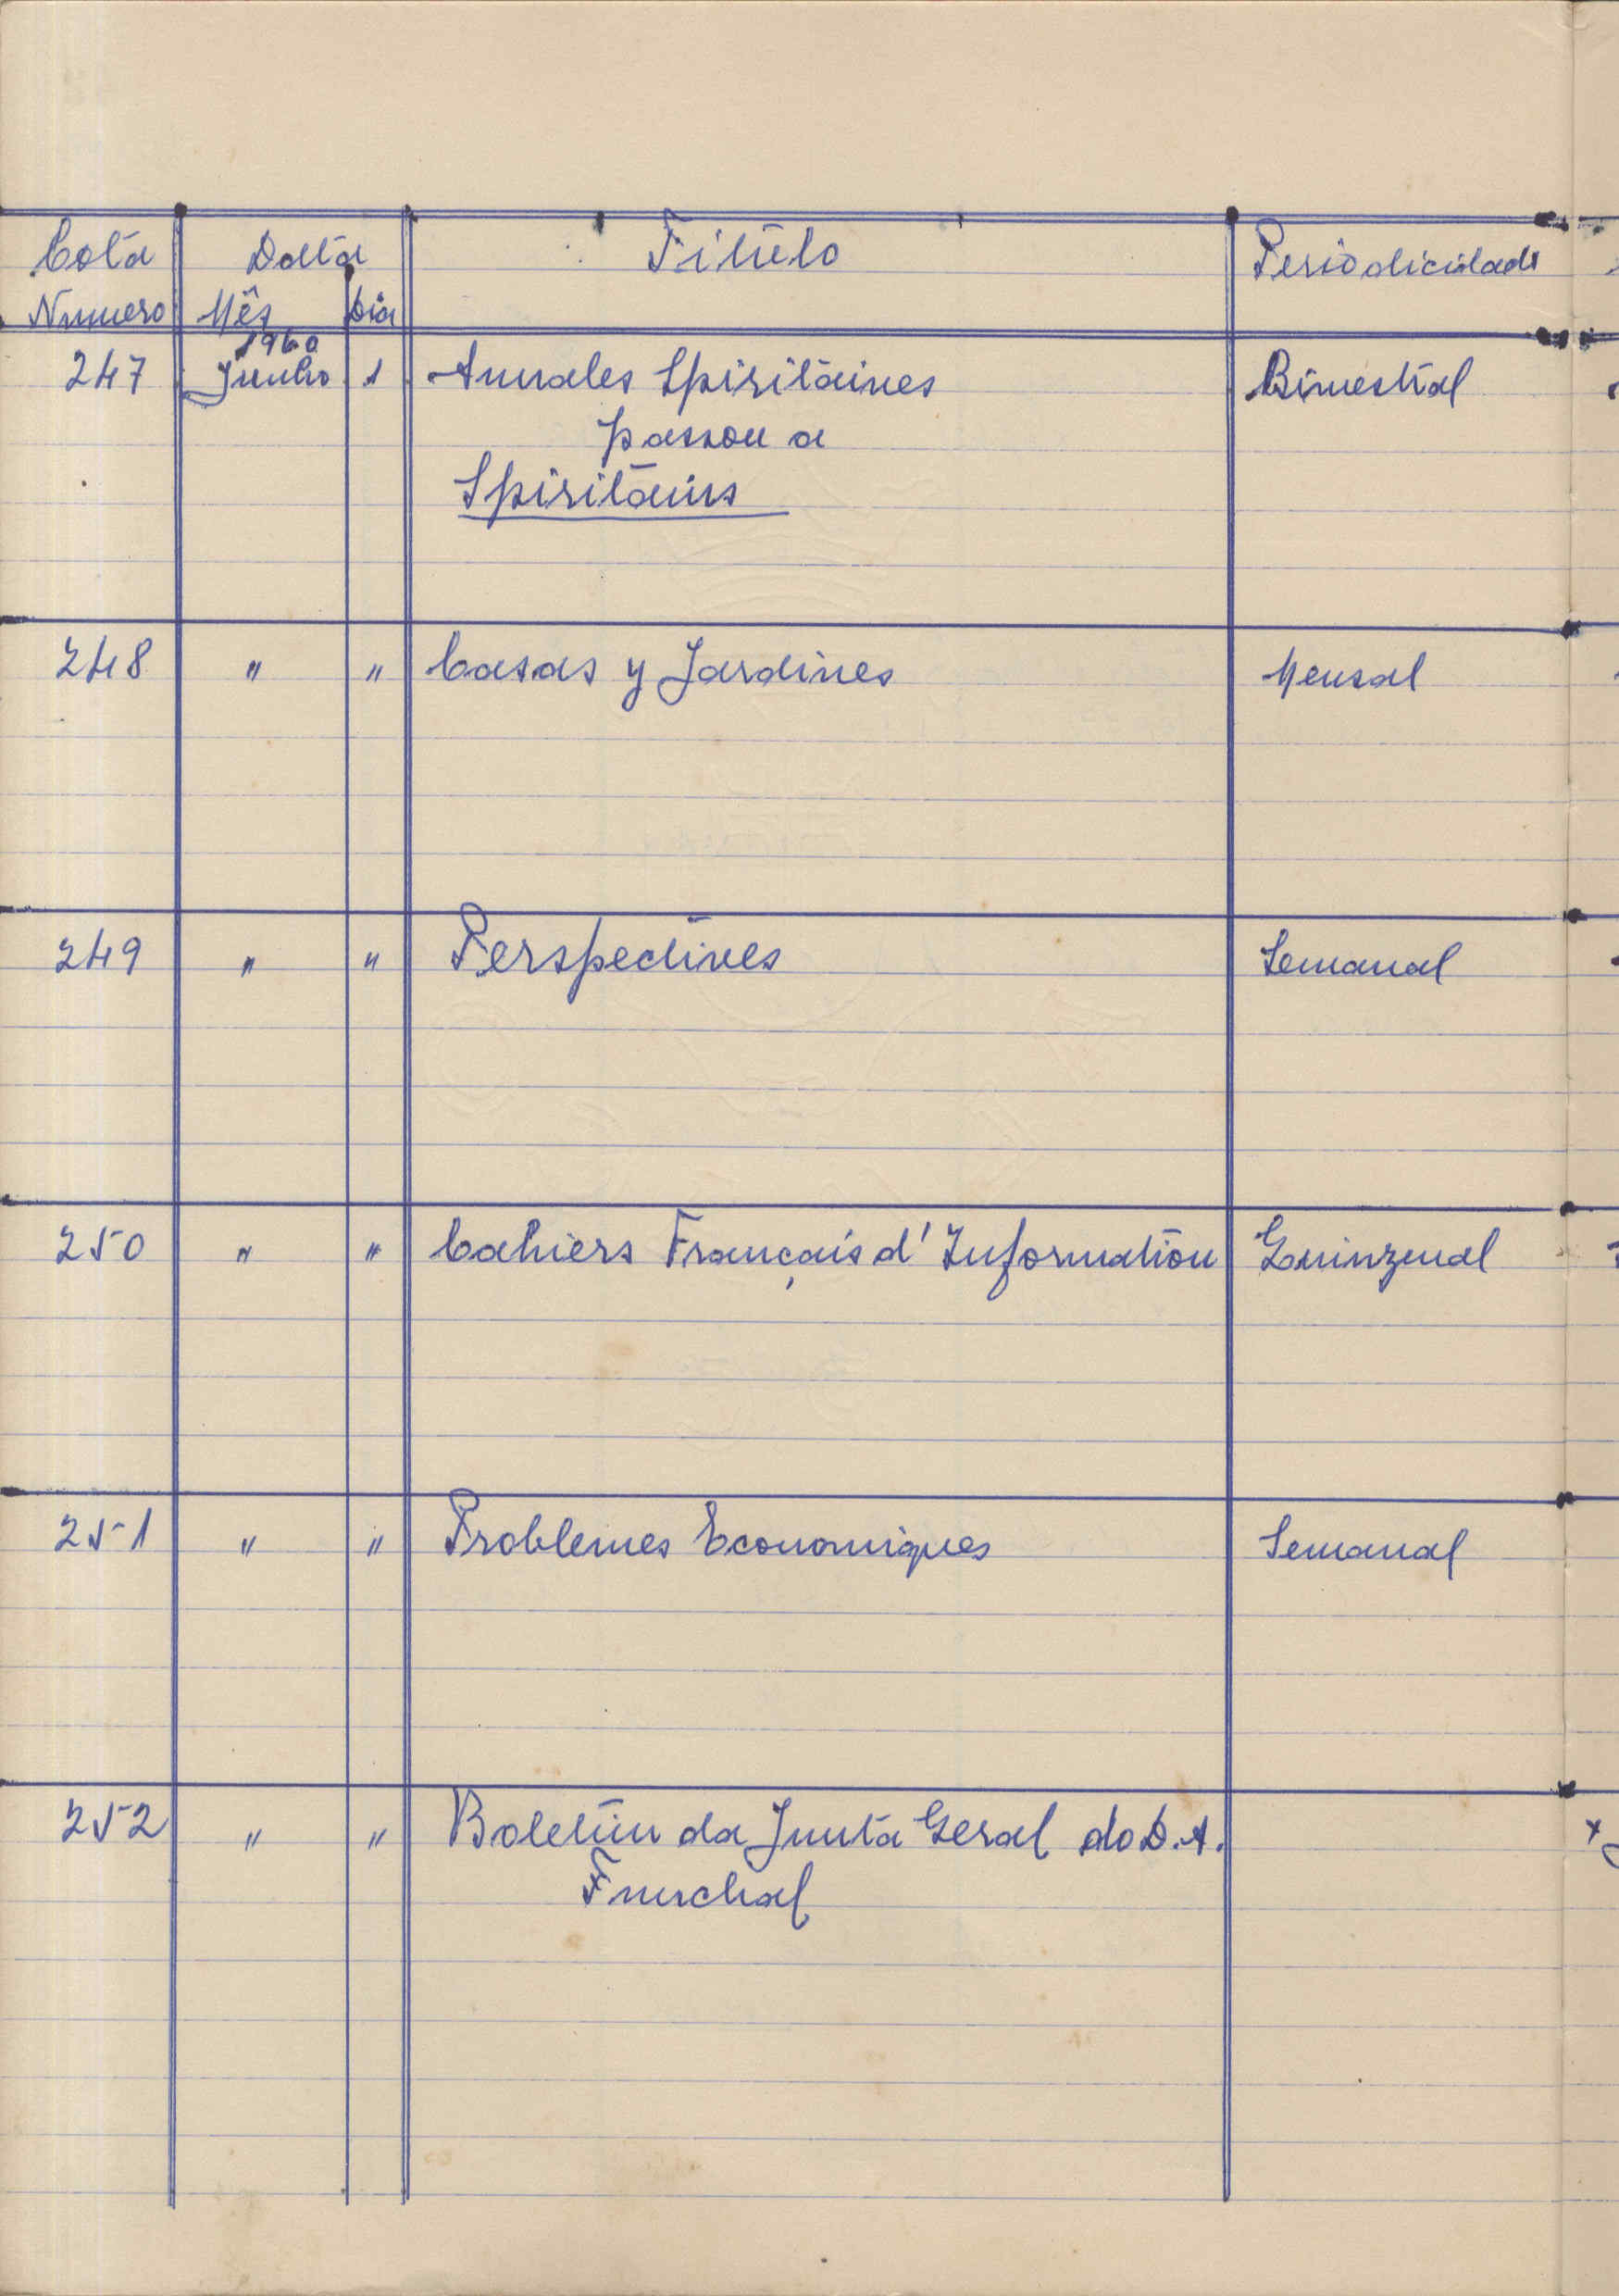 Cota Data Titulo Periodicidade
Numero Mês Dia
1960
247 Junho 1 Annales Spiritaines Bimestral
passou a
Spiritains
248 " " Casas y Jardines Mensal
249 " " Perspectives Semanal
250 " " Cahiers Français d'Information Quinzenal
251 " " Problemes Economiques Semanal
252 " " Boletim da Junta Geral do D.A.
Funchal